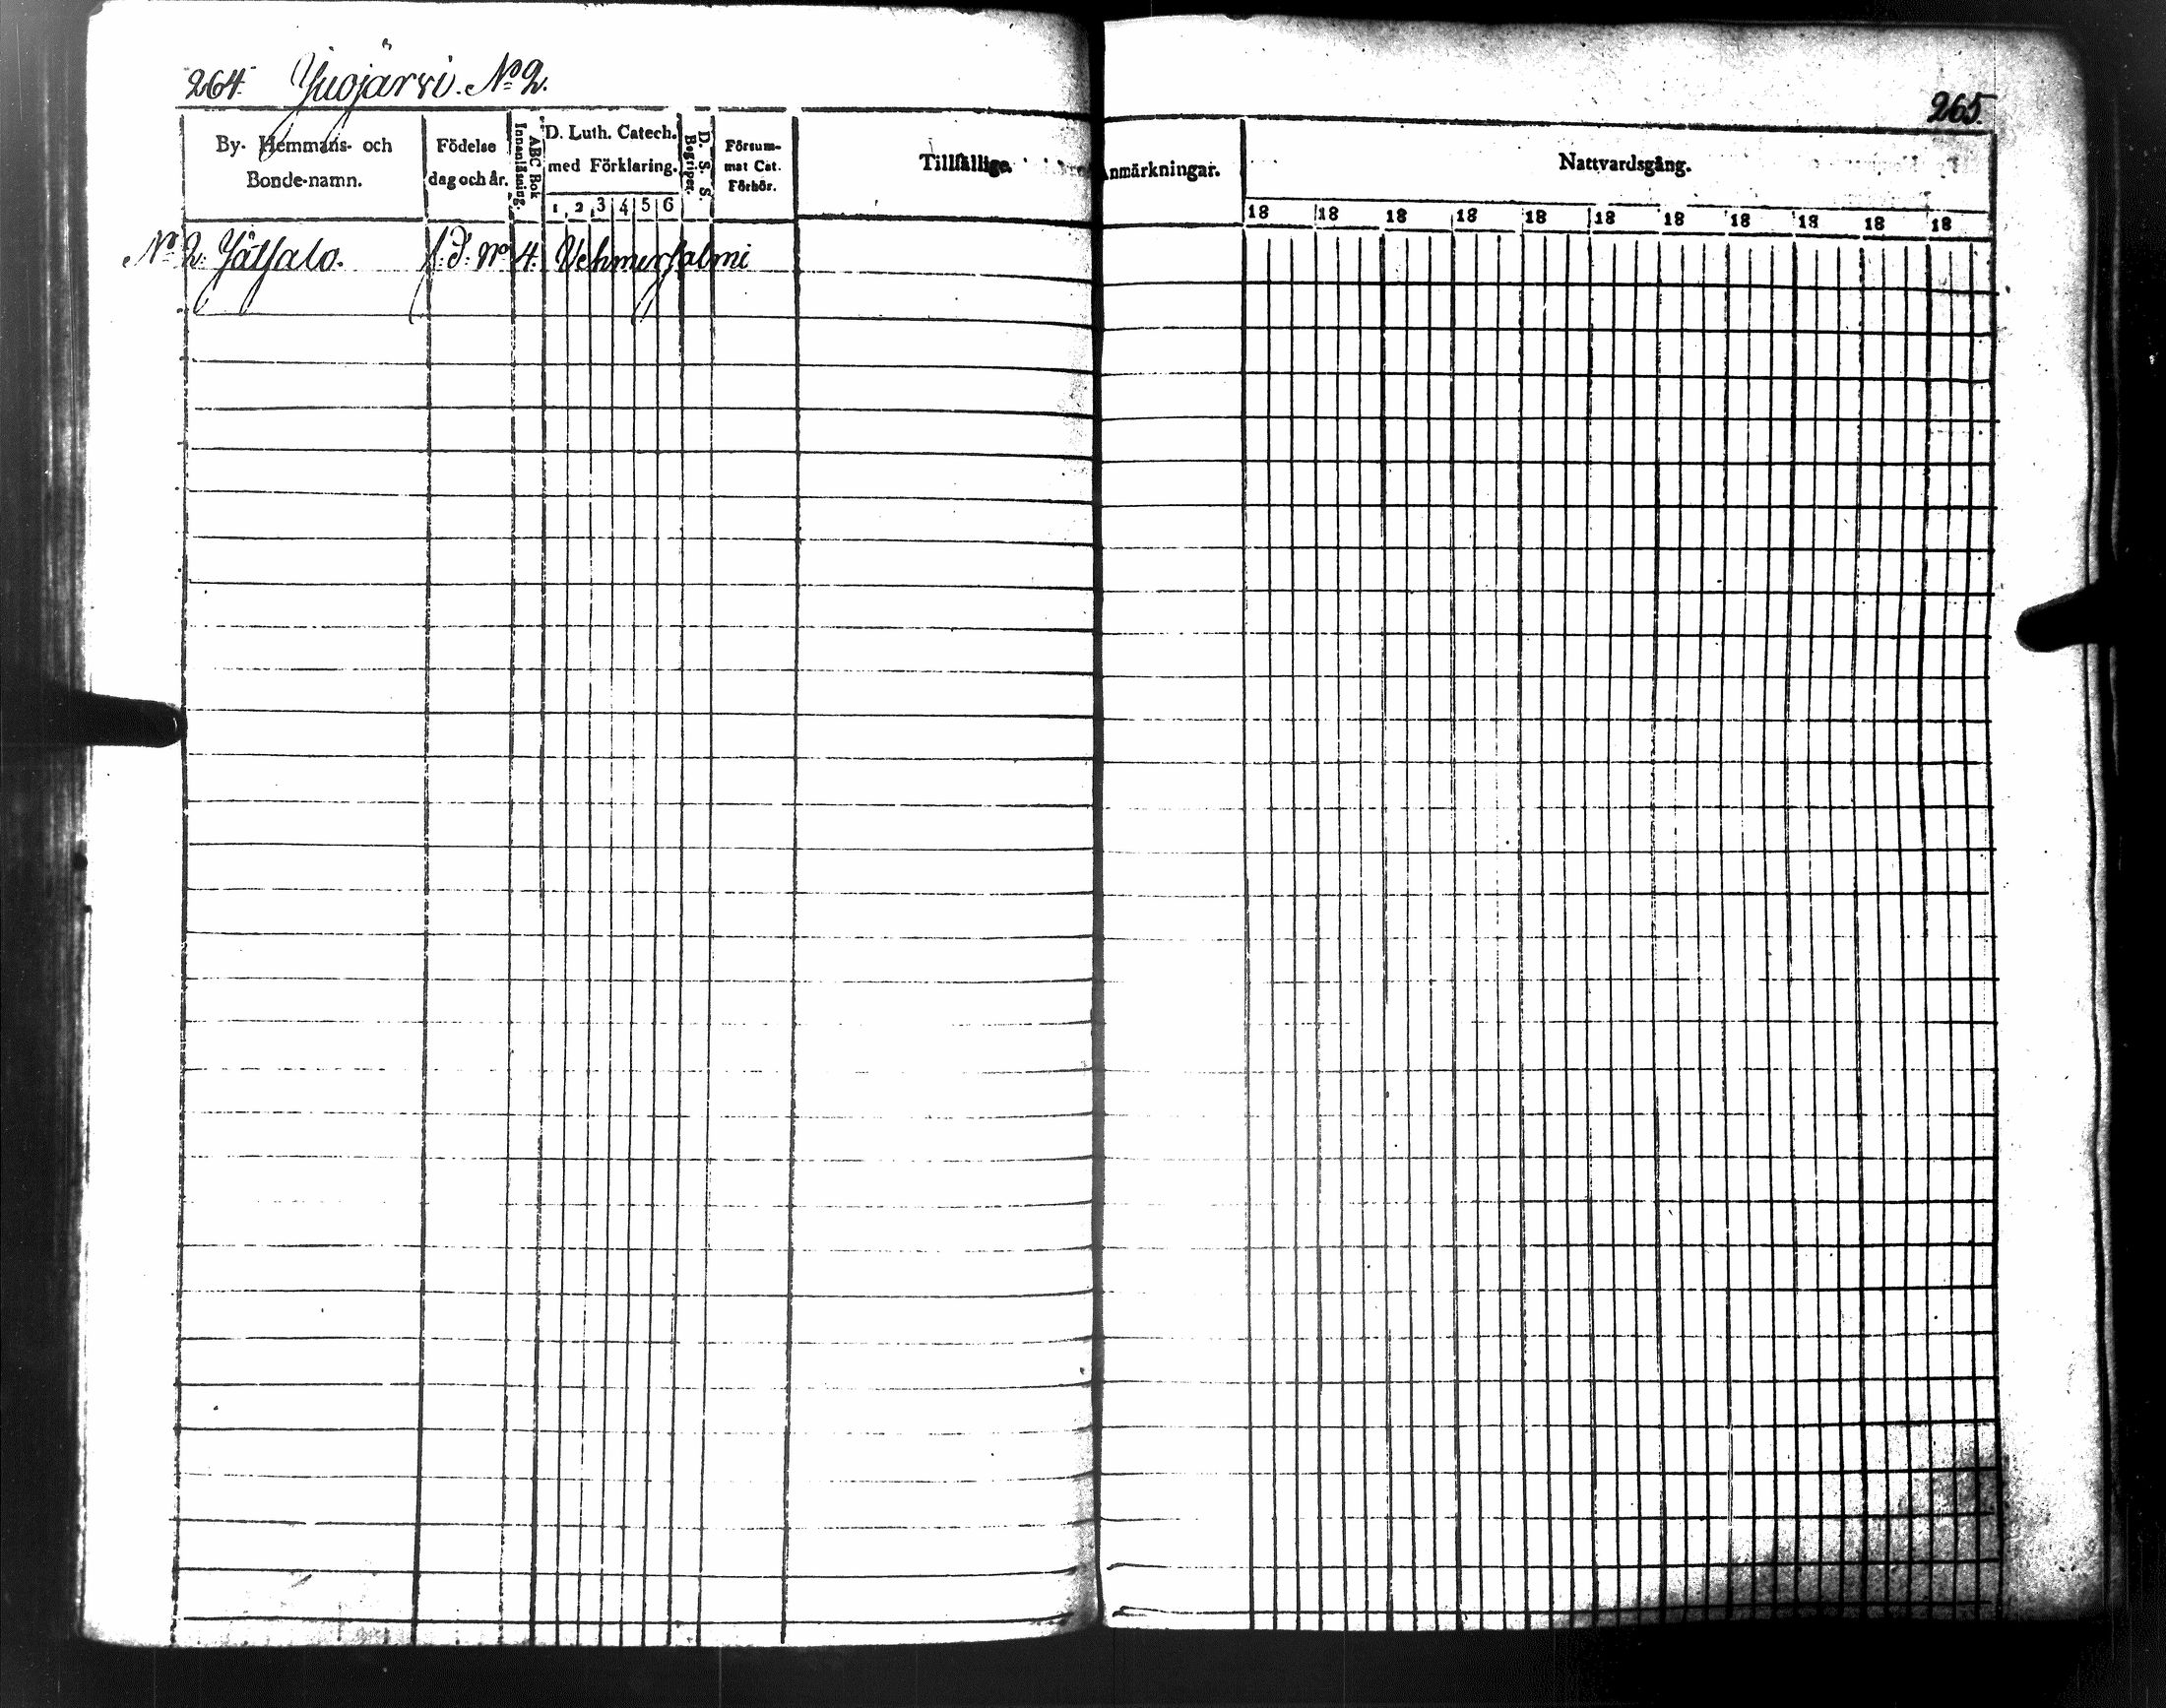 264. Juojärvi. No 2.
265.
By- Hemmans- och Bonde-namn.
Födelse dag och år.
ABC Bok Innanläsning.
D. Luth. Catech. med Förklaring.
1 2 3 4 5 6
D. S. S. Begriper.
Försummat Cat. Förhör.
Tillfällige Anmärkningar.
Nattvardsgång.
18 18 18 18 18 18 18 18 18 18 18
No 2. Jätsalo. f. d. No 4. Vehmersalmi